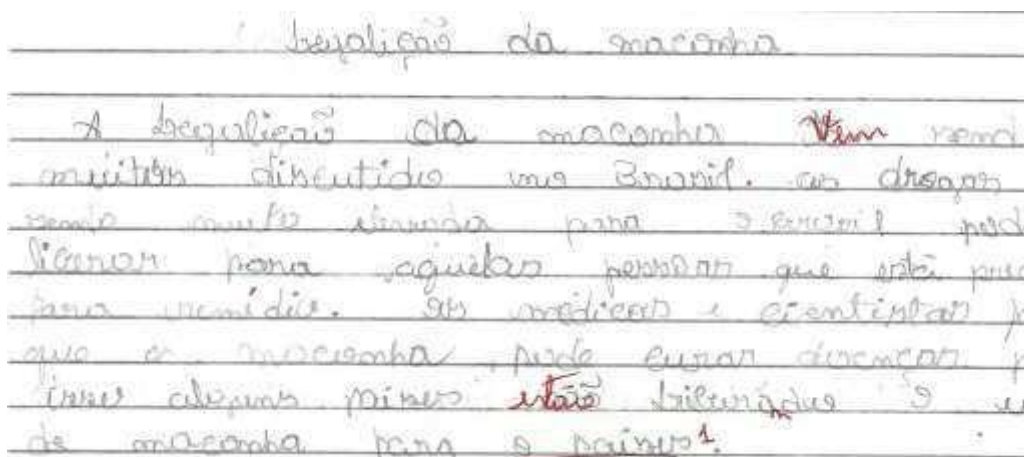 legalição da maconha
A legalição da maconha vem send
muitos discutido no Brasil. as drogas
sendo muito para o Brasil pod
liberar para aquelas pessoas que está prec
para remídio. os médicos e cientistas p
que a maconha pode curar doenças p
isso alguns paises estão liberando o u
de maconha para o paises¹.